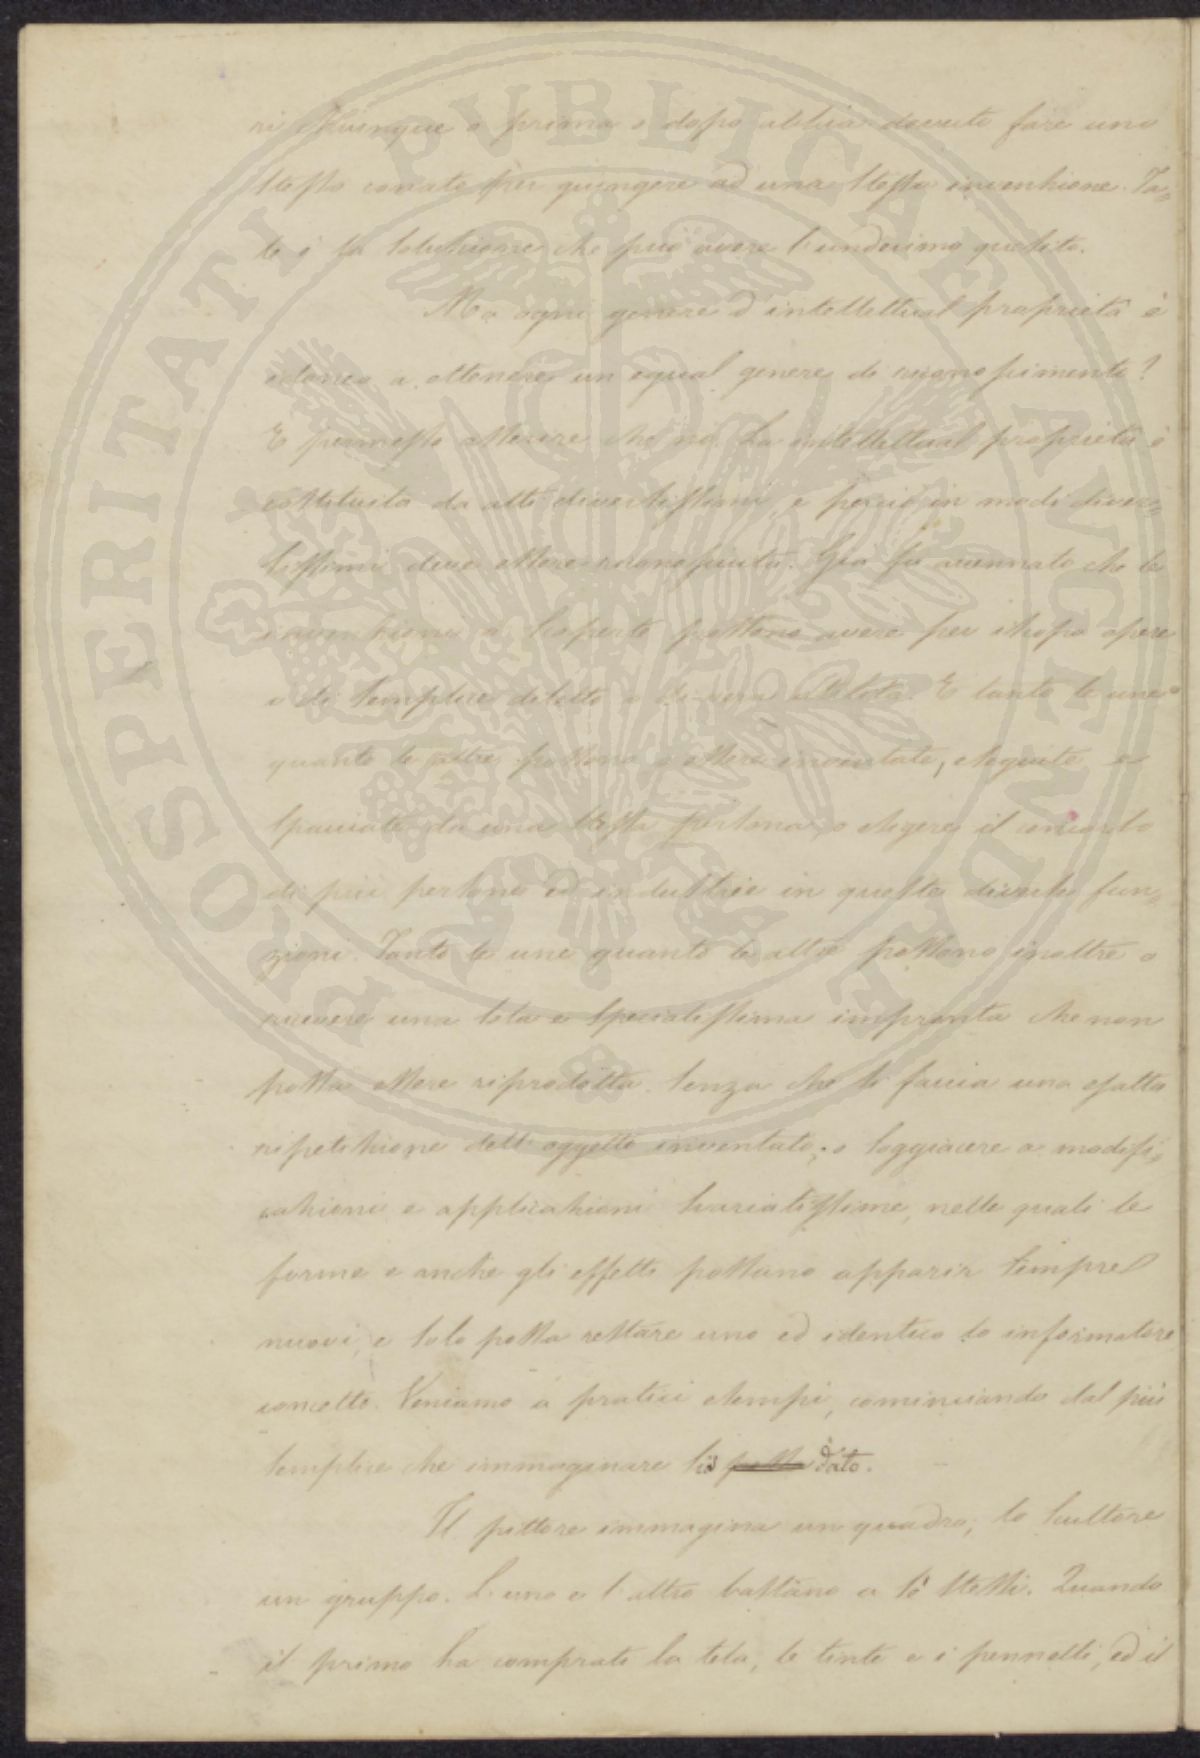 ri chiunque o prima o dopo abbia dovuto fare uno
stesso conato per giungere ad una stessa invenzione. Ta-
le è la soluzione che può avere l'undecimo quesito.
Ma ogni genere d'intellettual proprietà è
idoneo a ottenere un egual genere di riconoscimento?
È permesso asserire che no. La intellettual proprietà è
costituita da atti diversissimi, e perciò in modi diver-
sissimi deve essere riconosciuta. Già fu accennato che le
invenzioni o scoperte possono avere per iscopo opere
o di semplice diletto o di vera utilità. E tanto le une
quanto le altre possono o essere inventate, eseguite e
spacciate da una stessa persona, o esigere il concorso
di più persone ed industrie in queste diverse fun-
zioni. Tanto le une quanto le altre possono inoltre o
ricevere una sola e specialissima impronta che non
possa essere riprodotta senza che si faccia una esatta
ripetizione dell'oggetto inventato; o soggiacere a modifi-
cazioni e applicazioni svariatissime, nelle quali le
forme e anche gli effetti possano apparir sempre
nuovi, e solo possa restare uno ed identico lo informatore
concetto. Veniamo a pratici esempi, cominciando dal più
semplice che immaginare sia possa dato.
Il pittore immagina un quadro, lo scultore
un gruppo. L'uno e l'altro bastano a sè stessi. Quando
il primo ha comprato la tela, le tinte e i pennelli, ed il
PROSPERITATI PVBLICAE AVGENDAE